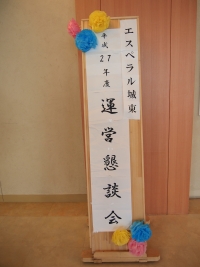 エスペラル城東
平成27年度
運営懇談会